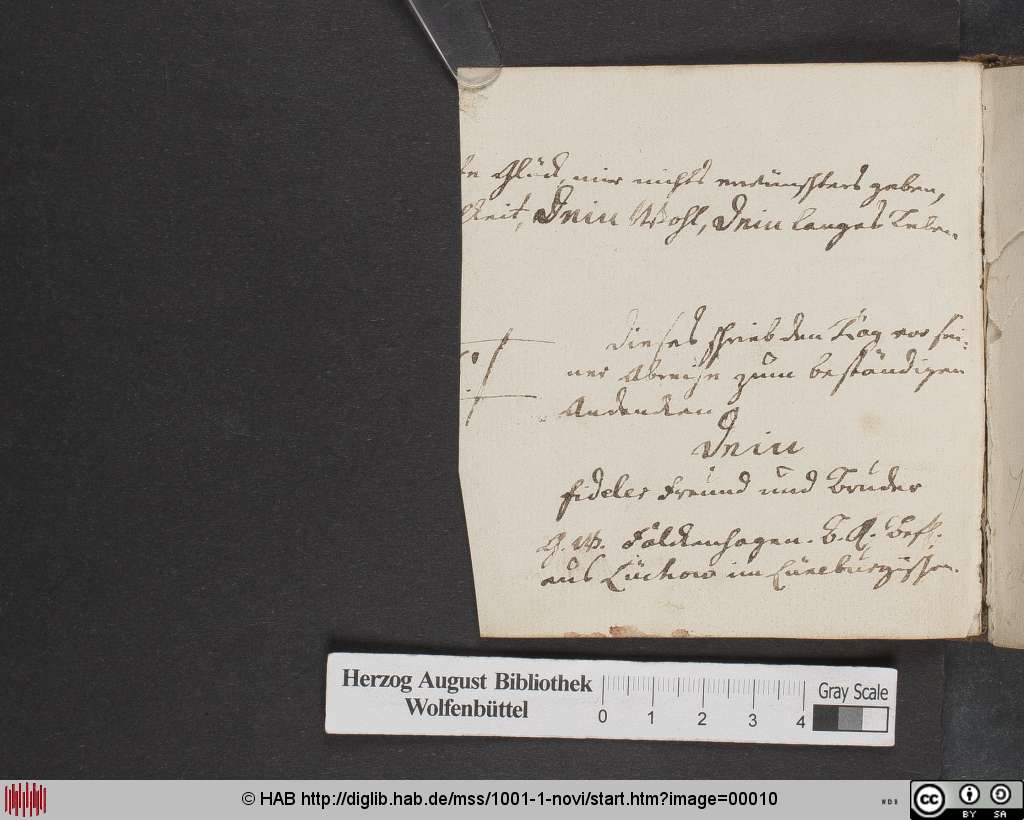 te Glück, mir nichts erwünschters geben,
keit, Dein Wohl, Dein langes Leben.
Dieses schrieb den Tag vor sei-
ner Abreise zum beständigen
Andencken
Dein
fideler Freund und Bruder
G. W. Fölckenhagen. B. R. Beff.
aus Lüchow im Lüneburgischen.
Herzog August Bibliothek
Wolfenbüttel
0 1 2 3 4
Gray Scale
© HAB http://diglib.hab.de/mss/1001-1-novi/start.htm?image=00010
cc BY SA